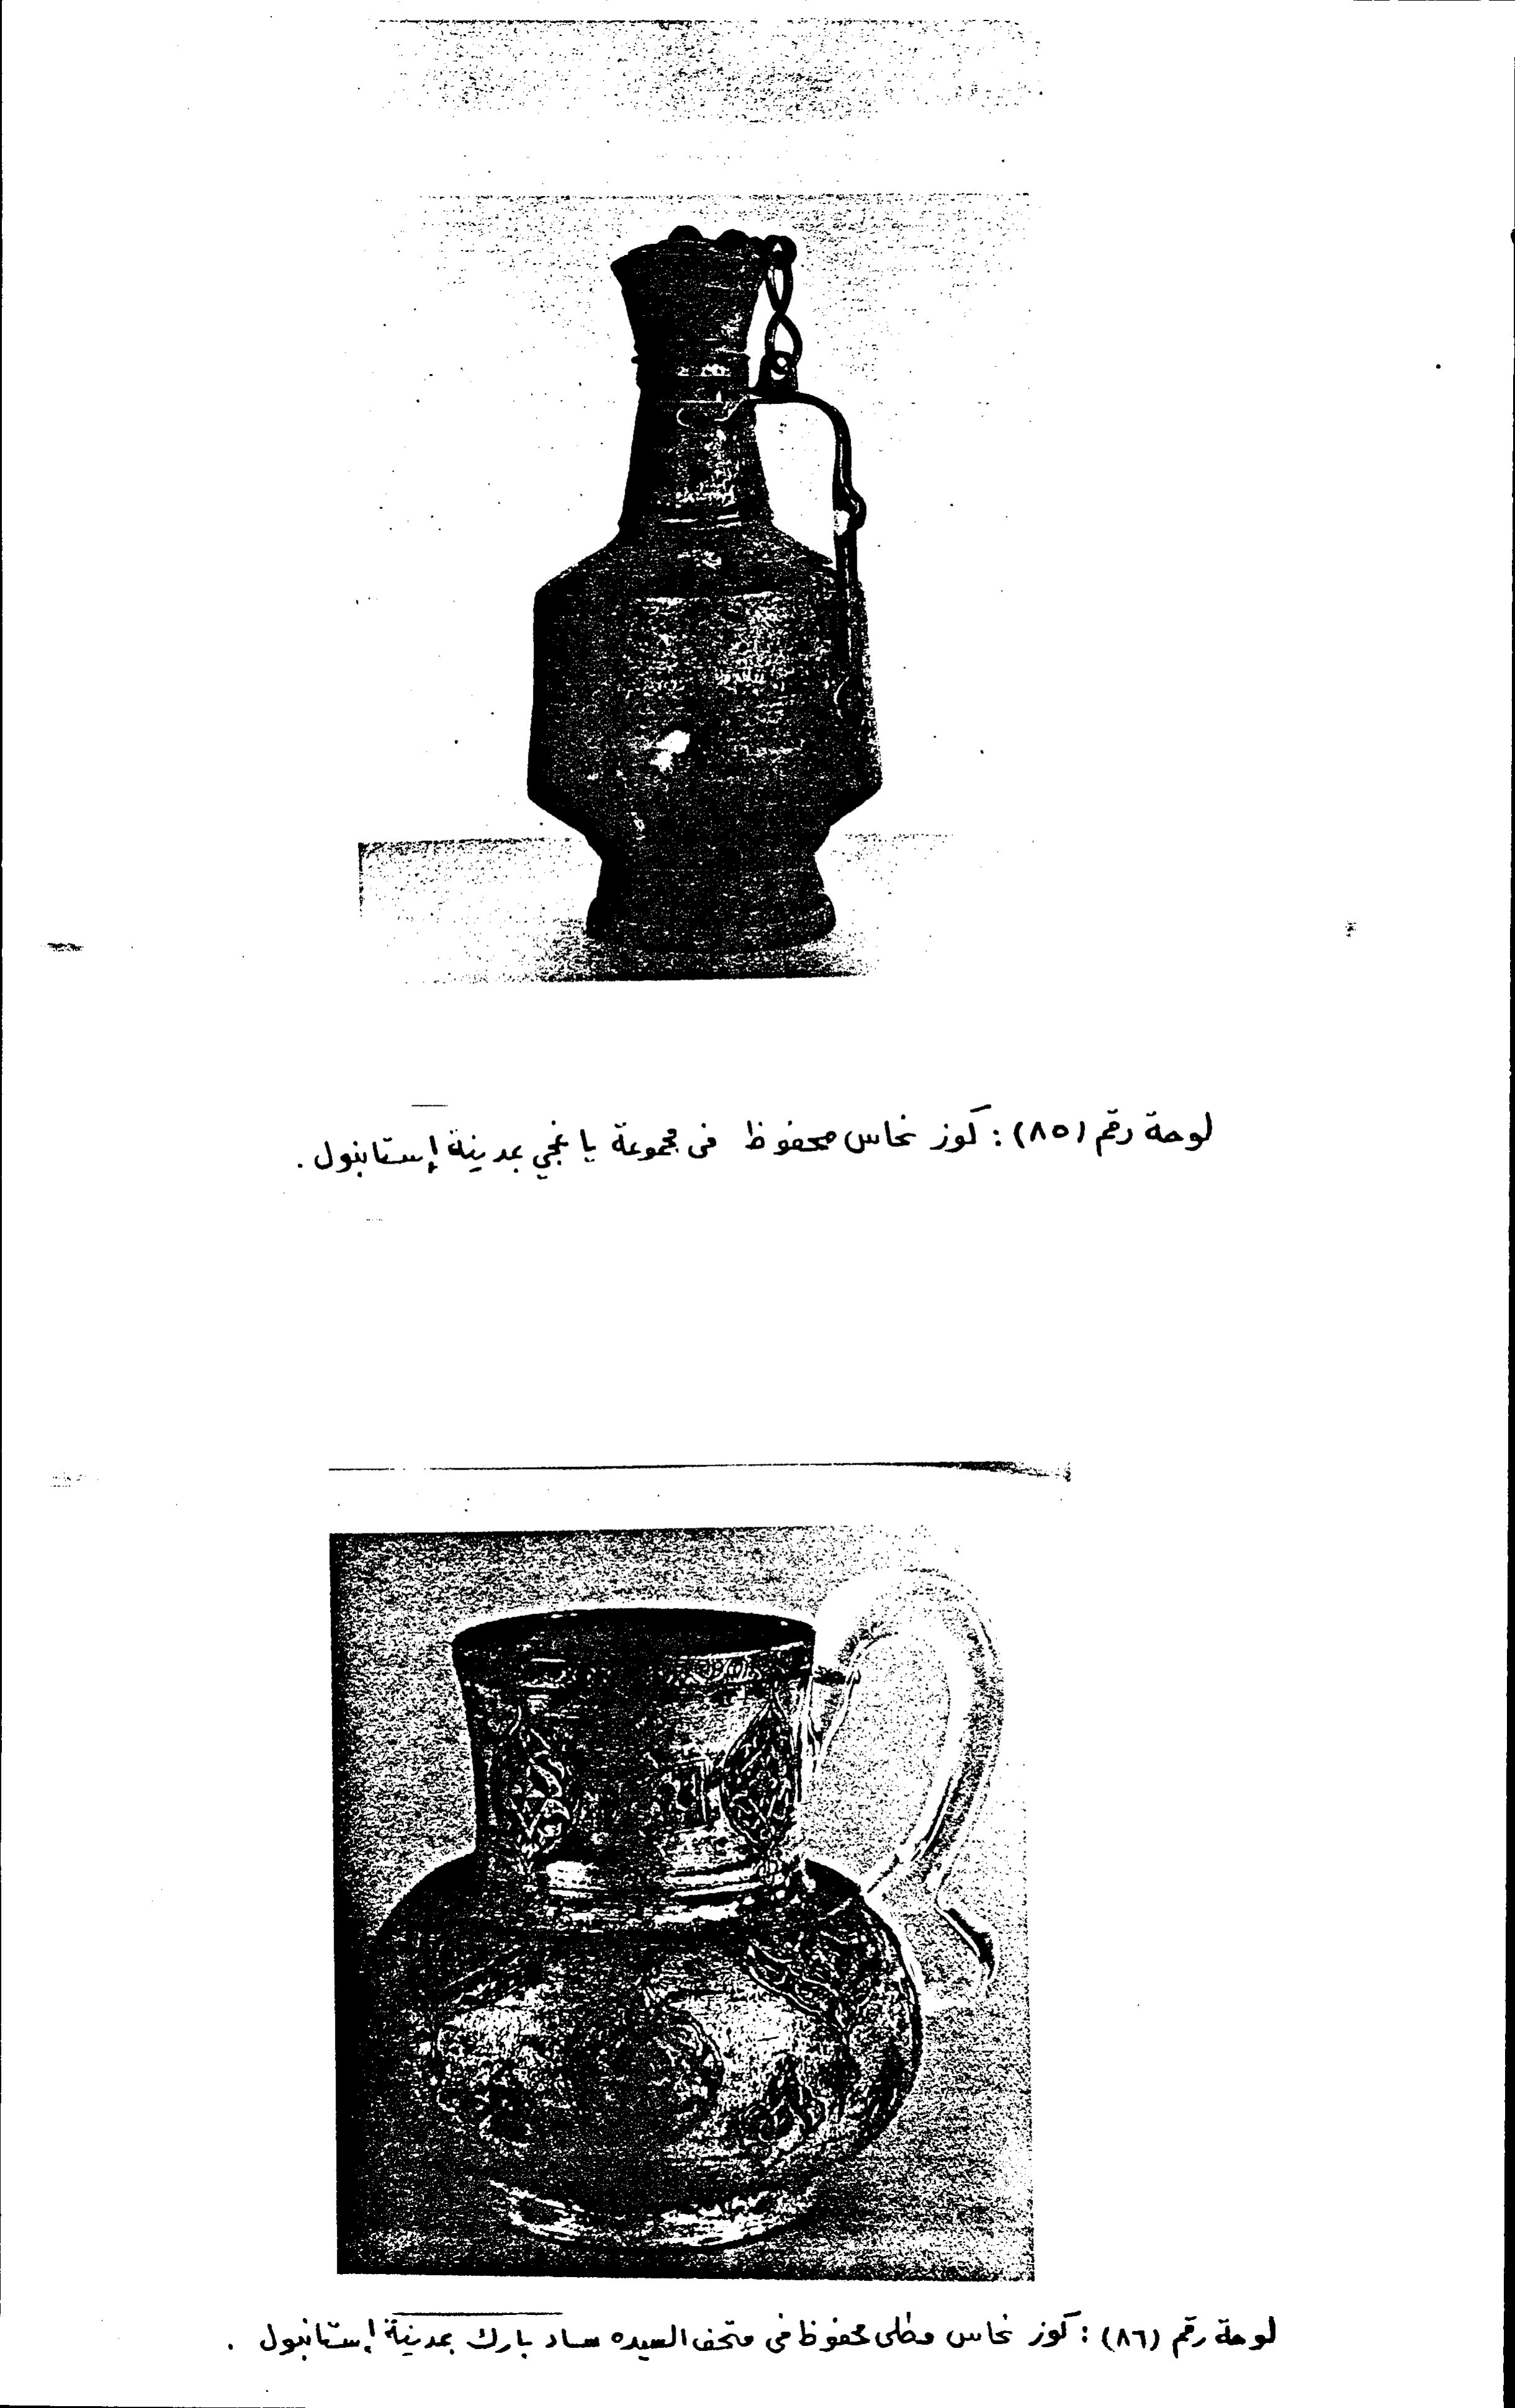 لوحة رقم (٨٥) : كوز نحاس محفوظ فى مجموعة ياغجي بمدينة إستانبول .
لوحة رقم (٨٦) : كوز نحاس مطلى محفوظ فى متحف السيده ساد بارك بمدينة إستانبول .